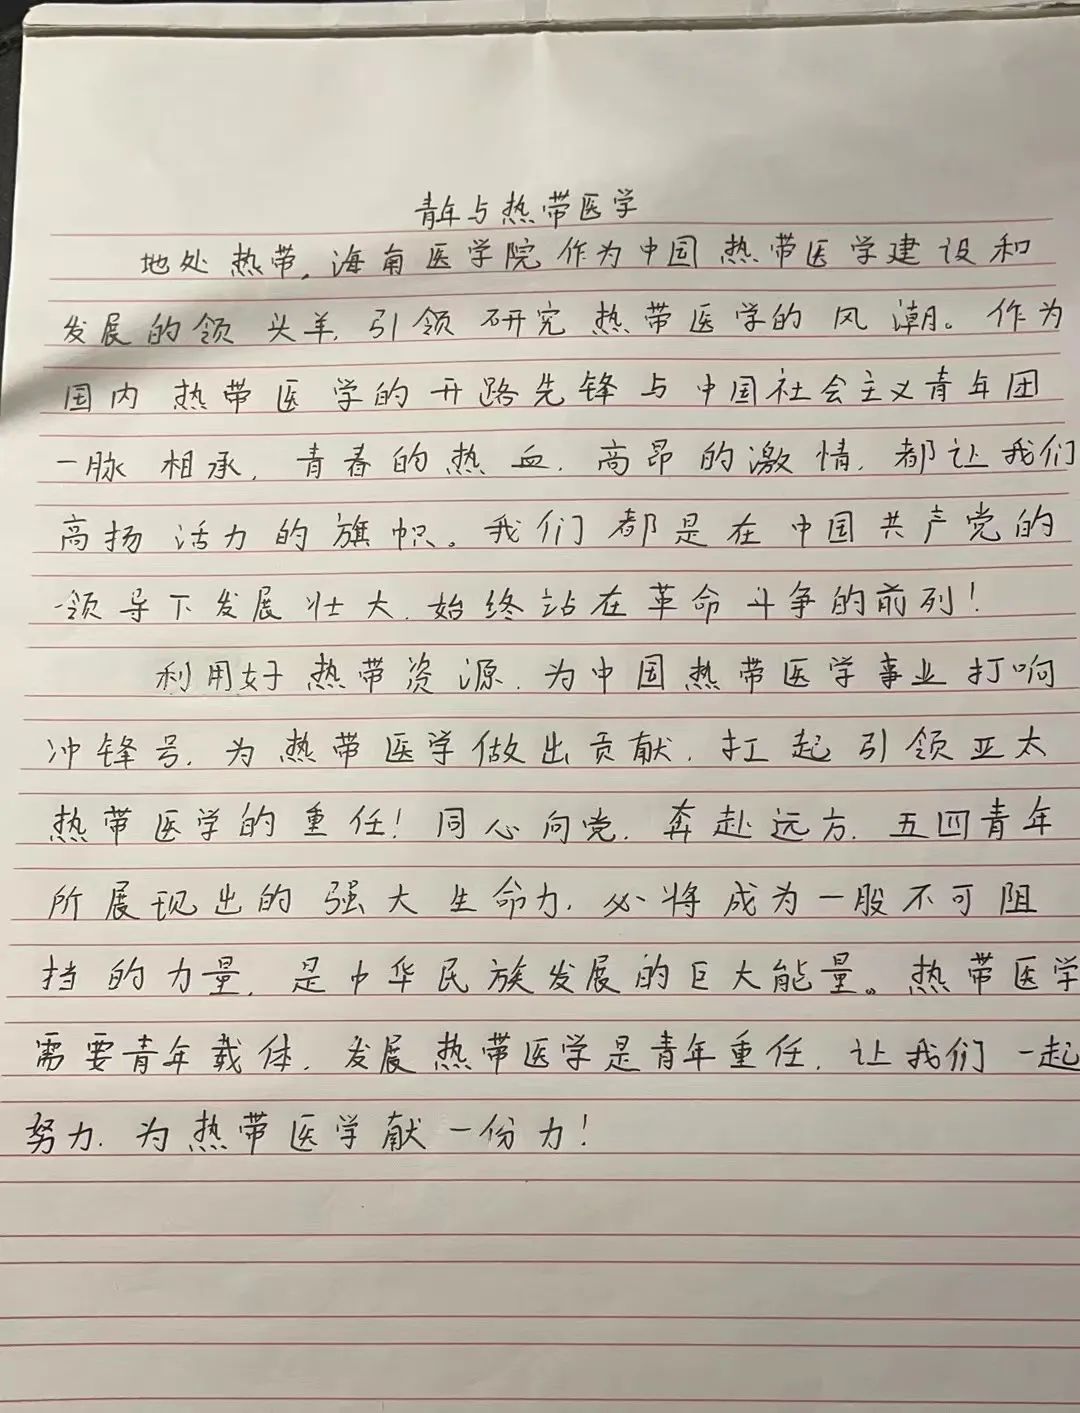 青年与热带医学
地处热带,海南医学院作为中国热带医学建设和
发展的领头羊,引领研究热带医学的风潮。作为
国内热带医学的开路先锋与中国社会主义青年团
一脉相承,青春的热血,高昂的激情,都让我们
高扬活力的旗帜。我们都是在中国共产党的
领导下发展壮大,始终站在革命斗争的前列!
利用好热带资源,为中国热带医学事业打响
冲锋号,为热带医学做出贡献,扛起引领亚太
热带医学的重任!同心向党,奔赴远方,五四青年
所展现出的强大生命力,必将成为一股不可阻
挡的力量,是中华民族发展的巨大能量。热带医学
需要青年载体,发展热带医学是青年重任,让我们一起
努力,为热带医学献一份力!